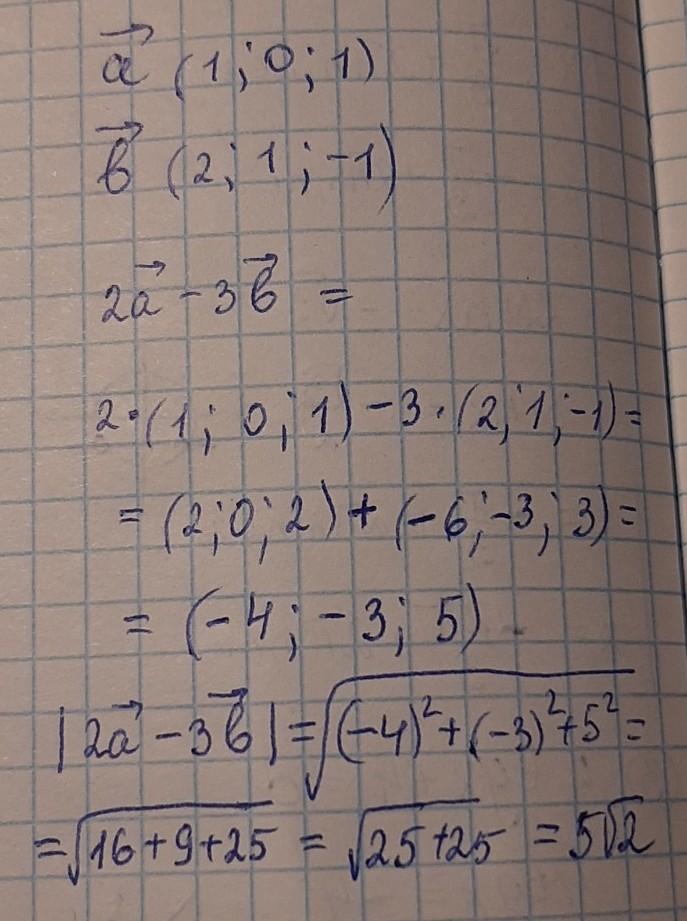 a⃗ (1; 0; 1)
b⃗ (2; 1; -1)
2a⃗ - 3b⃗ =
2·(1; 0; 1) - 3·(2; 1; -1) =
= (2; 0; 2) + (-6; -3; 3) =
= (-4; -3; 5)
|2a⃗ - 3b⃗| = √((-4)² + (-3)² + 5²) =
= √(16+9+25) = √(25+25) = 5√2